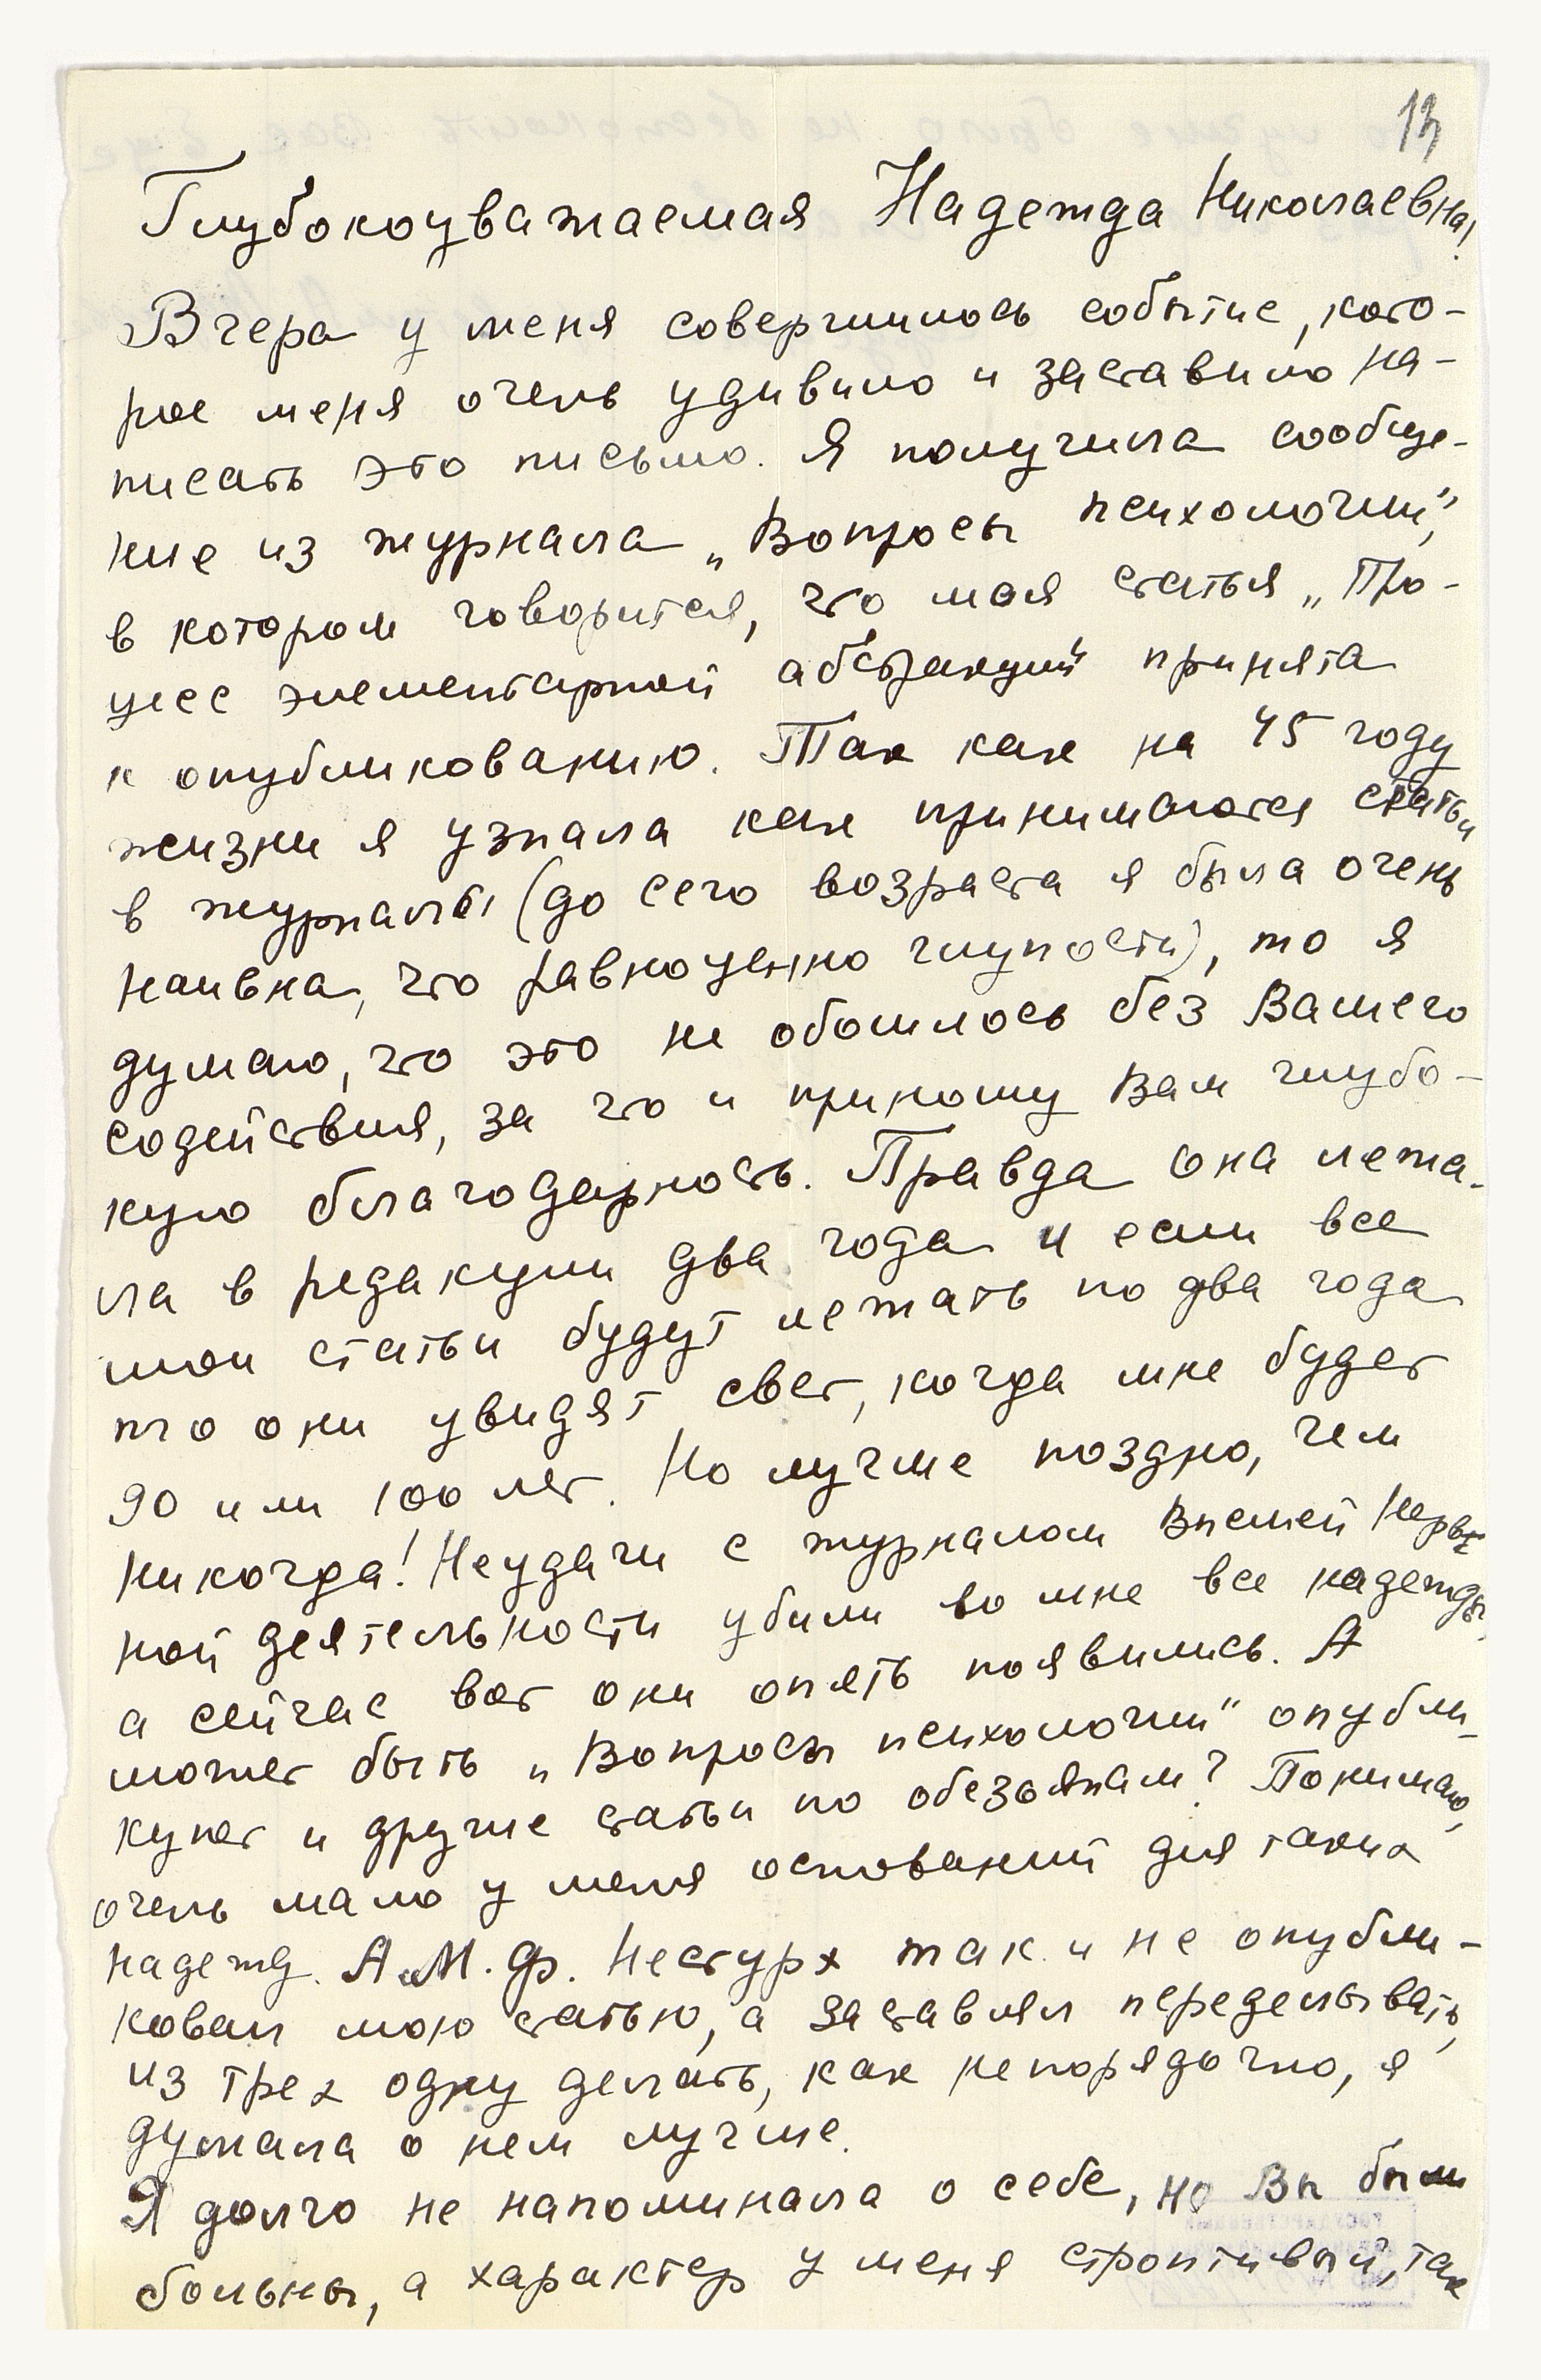 13
Глубокоуважаемая Надежда Николаевна!
Вчера у меня совершилось событие, кото-
рое меня очень удивило и заставило на-
писать это письмо. Я получила сообще-
ние из журнала „Вопросы психологии",
в котором говорится, что моя статья „Про-
цесс элементарной абстракции" принята
к опубликованию. Так как на 45 году
жизни я узнала как принимаются статьи
в журналы (до сего возраста я была очень
наивна, что равноценно глупости), то я
думаю, что это не обошлось без Вашего
содействия, за что и приношу Вам глубо-
кую благодарность. Правда она лежа-
ла в редакции два года и если все
мои статьи будут лежать по два года
то они увидят свет, когда мне будет
90 или 100 лет. Но лучше поздно, чем
никогда! Неудачи с журналом Высшей Нерв-
ной деятельности убили во мне все надежды,
а сейчас вот они опять появились. А
может быть „Вопросы психологии" опубли-
кует и другие статьи по обезьянам? Понимаю,
очень мало у меня оснований для таких
надежд. А М.Ф. Нестурх так и не опубли-
ковал мою статью, а заставлял переделывать,
из трех одну делать, как непорядочно, я
думала о нем лучше.
Я долго не напоминала о себе, но Вы были
больны, а характер у меня строптивый, так